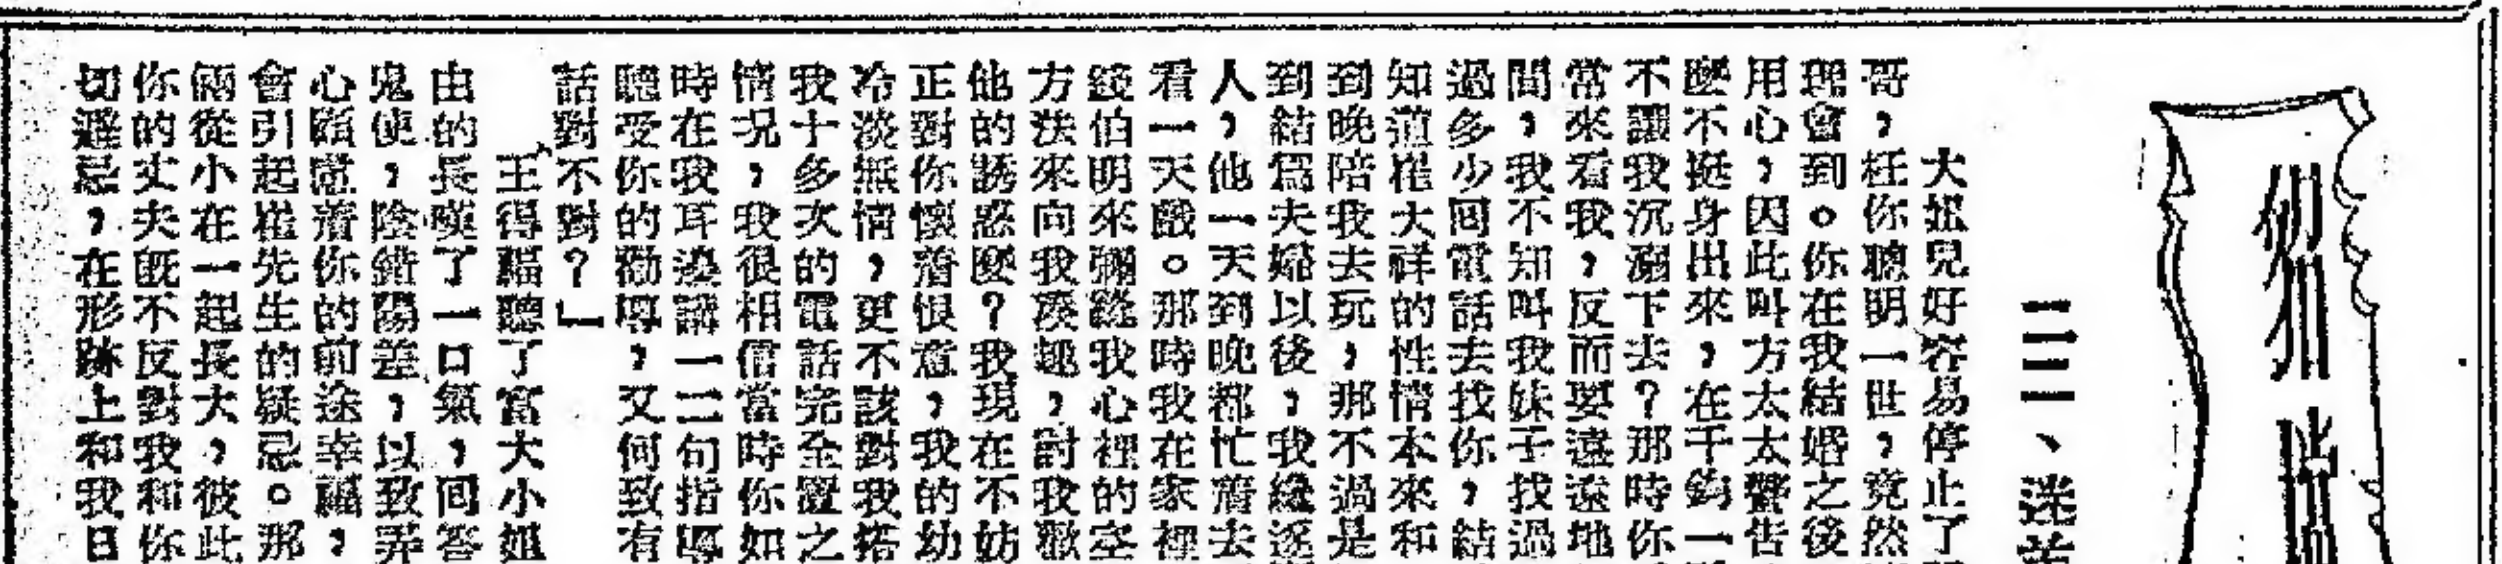 二三、迷
大姐兒好容易停止了
哥，枉你聰明一世，竟然
理會到。你在我結婚之後
用心，因此叫方太太聲告
麼不挺身出來，在千鈞一
不讓我沉溺下去？那時你
常來看我，反而要遠遠地
間，我不知叫我妹子找過
過多少回電話去找你，結
知道崔大祥的性情本來和
到晚陪我去玩，那不過是
到結爲夫婦以後，我纔逐
人，他一天到晚都忙着去
看一天戲。那時我在家裡
錢伯明來彌縫我心裡的空
方法來向我湊趣，討我歡
他的誘惑麼？我現在不妨
正對你懷着恨意，我的幼
冷淡無情，更不該對我搭
我十多次的電話完全置之
情況，我很相信當時你如
時在我耳邊講一二句指導
聽受你的勸導，又何致有
話對不對？」
王得福聽了富大小姐
由的長嘆了一口氣，回答
鬼使，陰錯陽差，以致弄
心願意着你的前途幸福，
會引起崔先生的疑忌。那
倆從小在一起長大，彼此
你的丈夫既不反對我和你
切避忌，在形跡上和我日